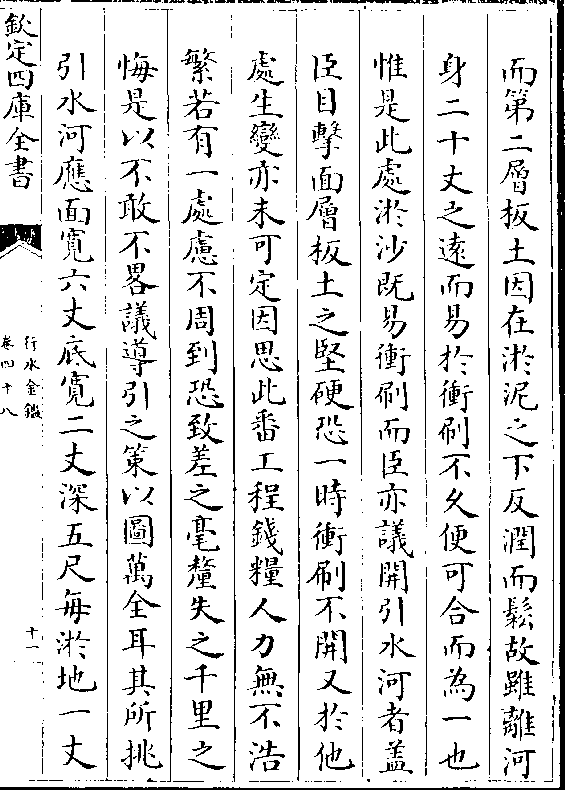 而第二層板土因在淤泥之下反潤而鬆故雖離河
身二十丈之遠而易於衝刷不久便可合而為一也
惟是此處淤沙既易衝刷而臣亦議開引水河者蓋
臣目擊面層板土之堅硬恐一時衝刷不開又於他
處生變亦未可定因思此番工程錢糧人力無不浩
繁若有一處慮不周到恐致差之毫釐失之千里之
悔是以不敢不畧議導引之策以圖萬全耳其所挑
引水河應面寬六丈底寬二丈深五尺每淤地一丈
欽定四庫全書
行水金鑑
卷四十八
十一